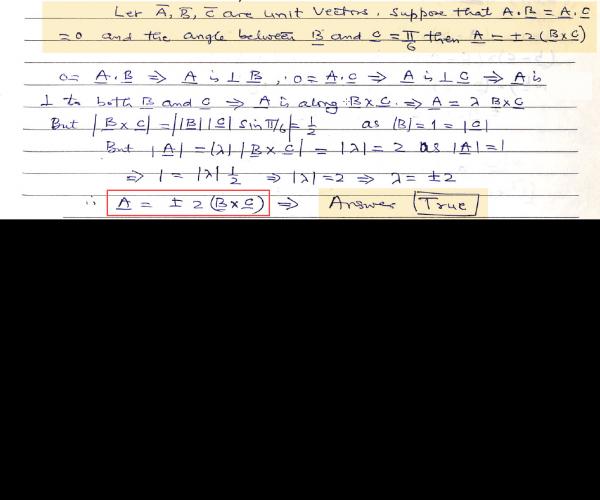 Let A̅, B̅, C̅ are unit vectors. Suppose that A̲.B̲ = A̲.C̲
= 0 and the angle between B̲ and C̲ = π/6 then A̲ = ±2(B×C)
0 = A̲.B̲ ⇒ A̲ is ⊥ B̲, 0 = A̲.C̲ ⇒ A̲ is ⊥ C̲ ⇒ A̲ is
⊥ to both B̲ and C̲ ⇒ A̲ is along B̲×C̲ ⇒ A̲ = λ B̲×C̲
But |B̲×C̲| = ||B̲||C̲| sin π/6| = 1/2 as |B̲| = 1 = |C̲|
But |A̲| = |λ| |B̲×C̲| = |λ| = 2 as |A̲| = 1
⇒ 1 = |λ| 1/2 ⇒ |λ| = 2 ⇒ λ = ±2
∴ A̲ = ± 2 (B̲×C̲) ⇒ Answer True